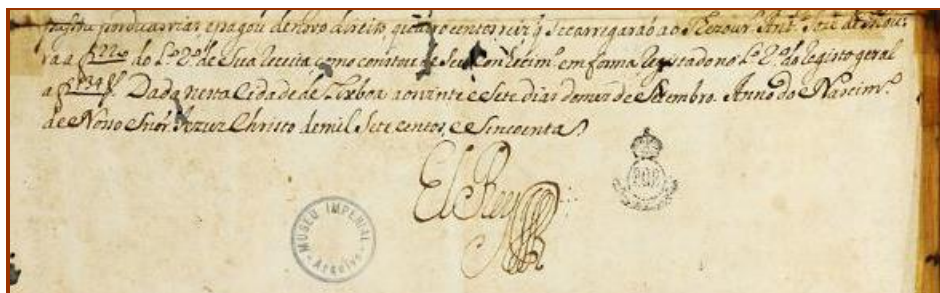 passou por duas vias, e pagou de novo direito quatro centos reis q̃ se carregarão ao Thezour.º Ant.º Joze de
ra a f 220 do L.º 2.º de Sua Receita como constou de seu Conhecim.to em forma Registado no L.º 2.º do Registo geral
a f 134 Dada nesta Cidade de Lixboa aos vinte e sete dias do mez de Settembro. Anno do Nascim.to
de Nosso Snõr Jezus Christo de mil Sete centos, e Sincoenta
El Rey
MUSEU IMPERIAL
Arquivo